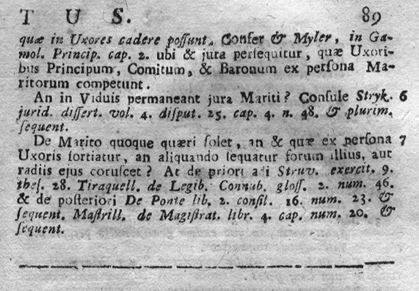 T U S. 89
quæ in Uxores cadere possunt. Confer & Myler, in Ga-
mol. Princip. cap. 2. ubi & jura persequitur, quæ Uxori-
bus Principum, Comitum, & Baronum ex persona Ma-
ritorum competunt.
An in Viduis permaneant jura Mariti? Consule Stryk. 6
jurid. dissert. vol. 4. disput. 25. cap. 4. n. 48. & plurim.
sequent.
De Marito quoque quæri solet, an & quæ ex persona 7
Uxoris sortiatur, an aliquando sequatur forum illius, aut
radiis ejus coruscet? At de priori adi Struv. exercit. 9.
thes. 28. Tiraquell. de Legib. Connub. gloss. 2. num. 46.
& de posteriori De Ponte lib. 2. consil. 16. num. 23. &
sequent. Mastrill. de Magistrat. libr. 4. cap. num. 20. &
sequent.